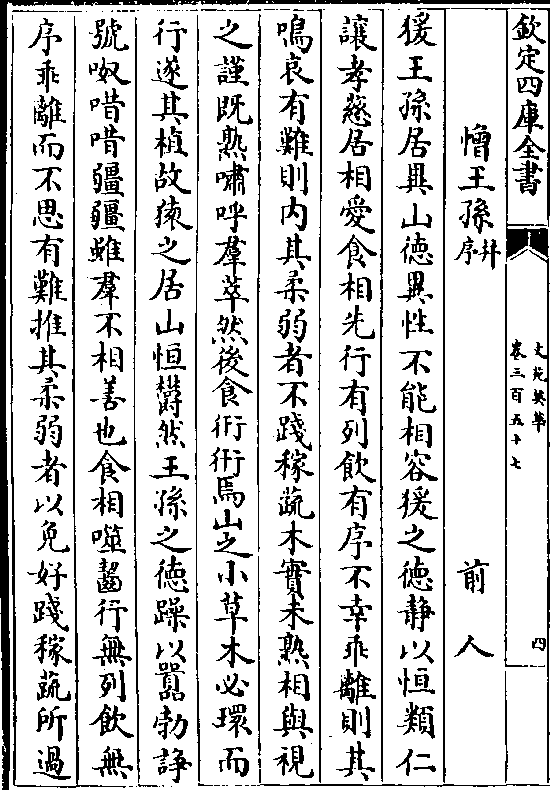 欽定四庫全書
文苑英華
卷三百五十七
四
憎王孫并序
前人
猨王孫居異山德異性不能相容猨之德静以恒類仁
讓孝慈居相愛食相先行有列飲有序不幸乖離則其
鳴哀有難則内其柔弱者不踐稼蔬木實未熟相與視
之謹既熟嘯呼羣萃然後食衎衎焉山之小草木必環而
行遂其植故猿之居山恒欝然王孫之德躁以囂勃諍
號呶唶唶彊彊雖羣不相善也食相噬齧行無列飲無
序乖離而不思有難推其柔弱者以免好踐稼蔬所過